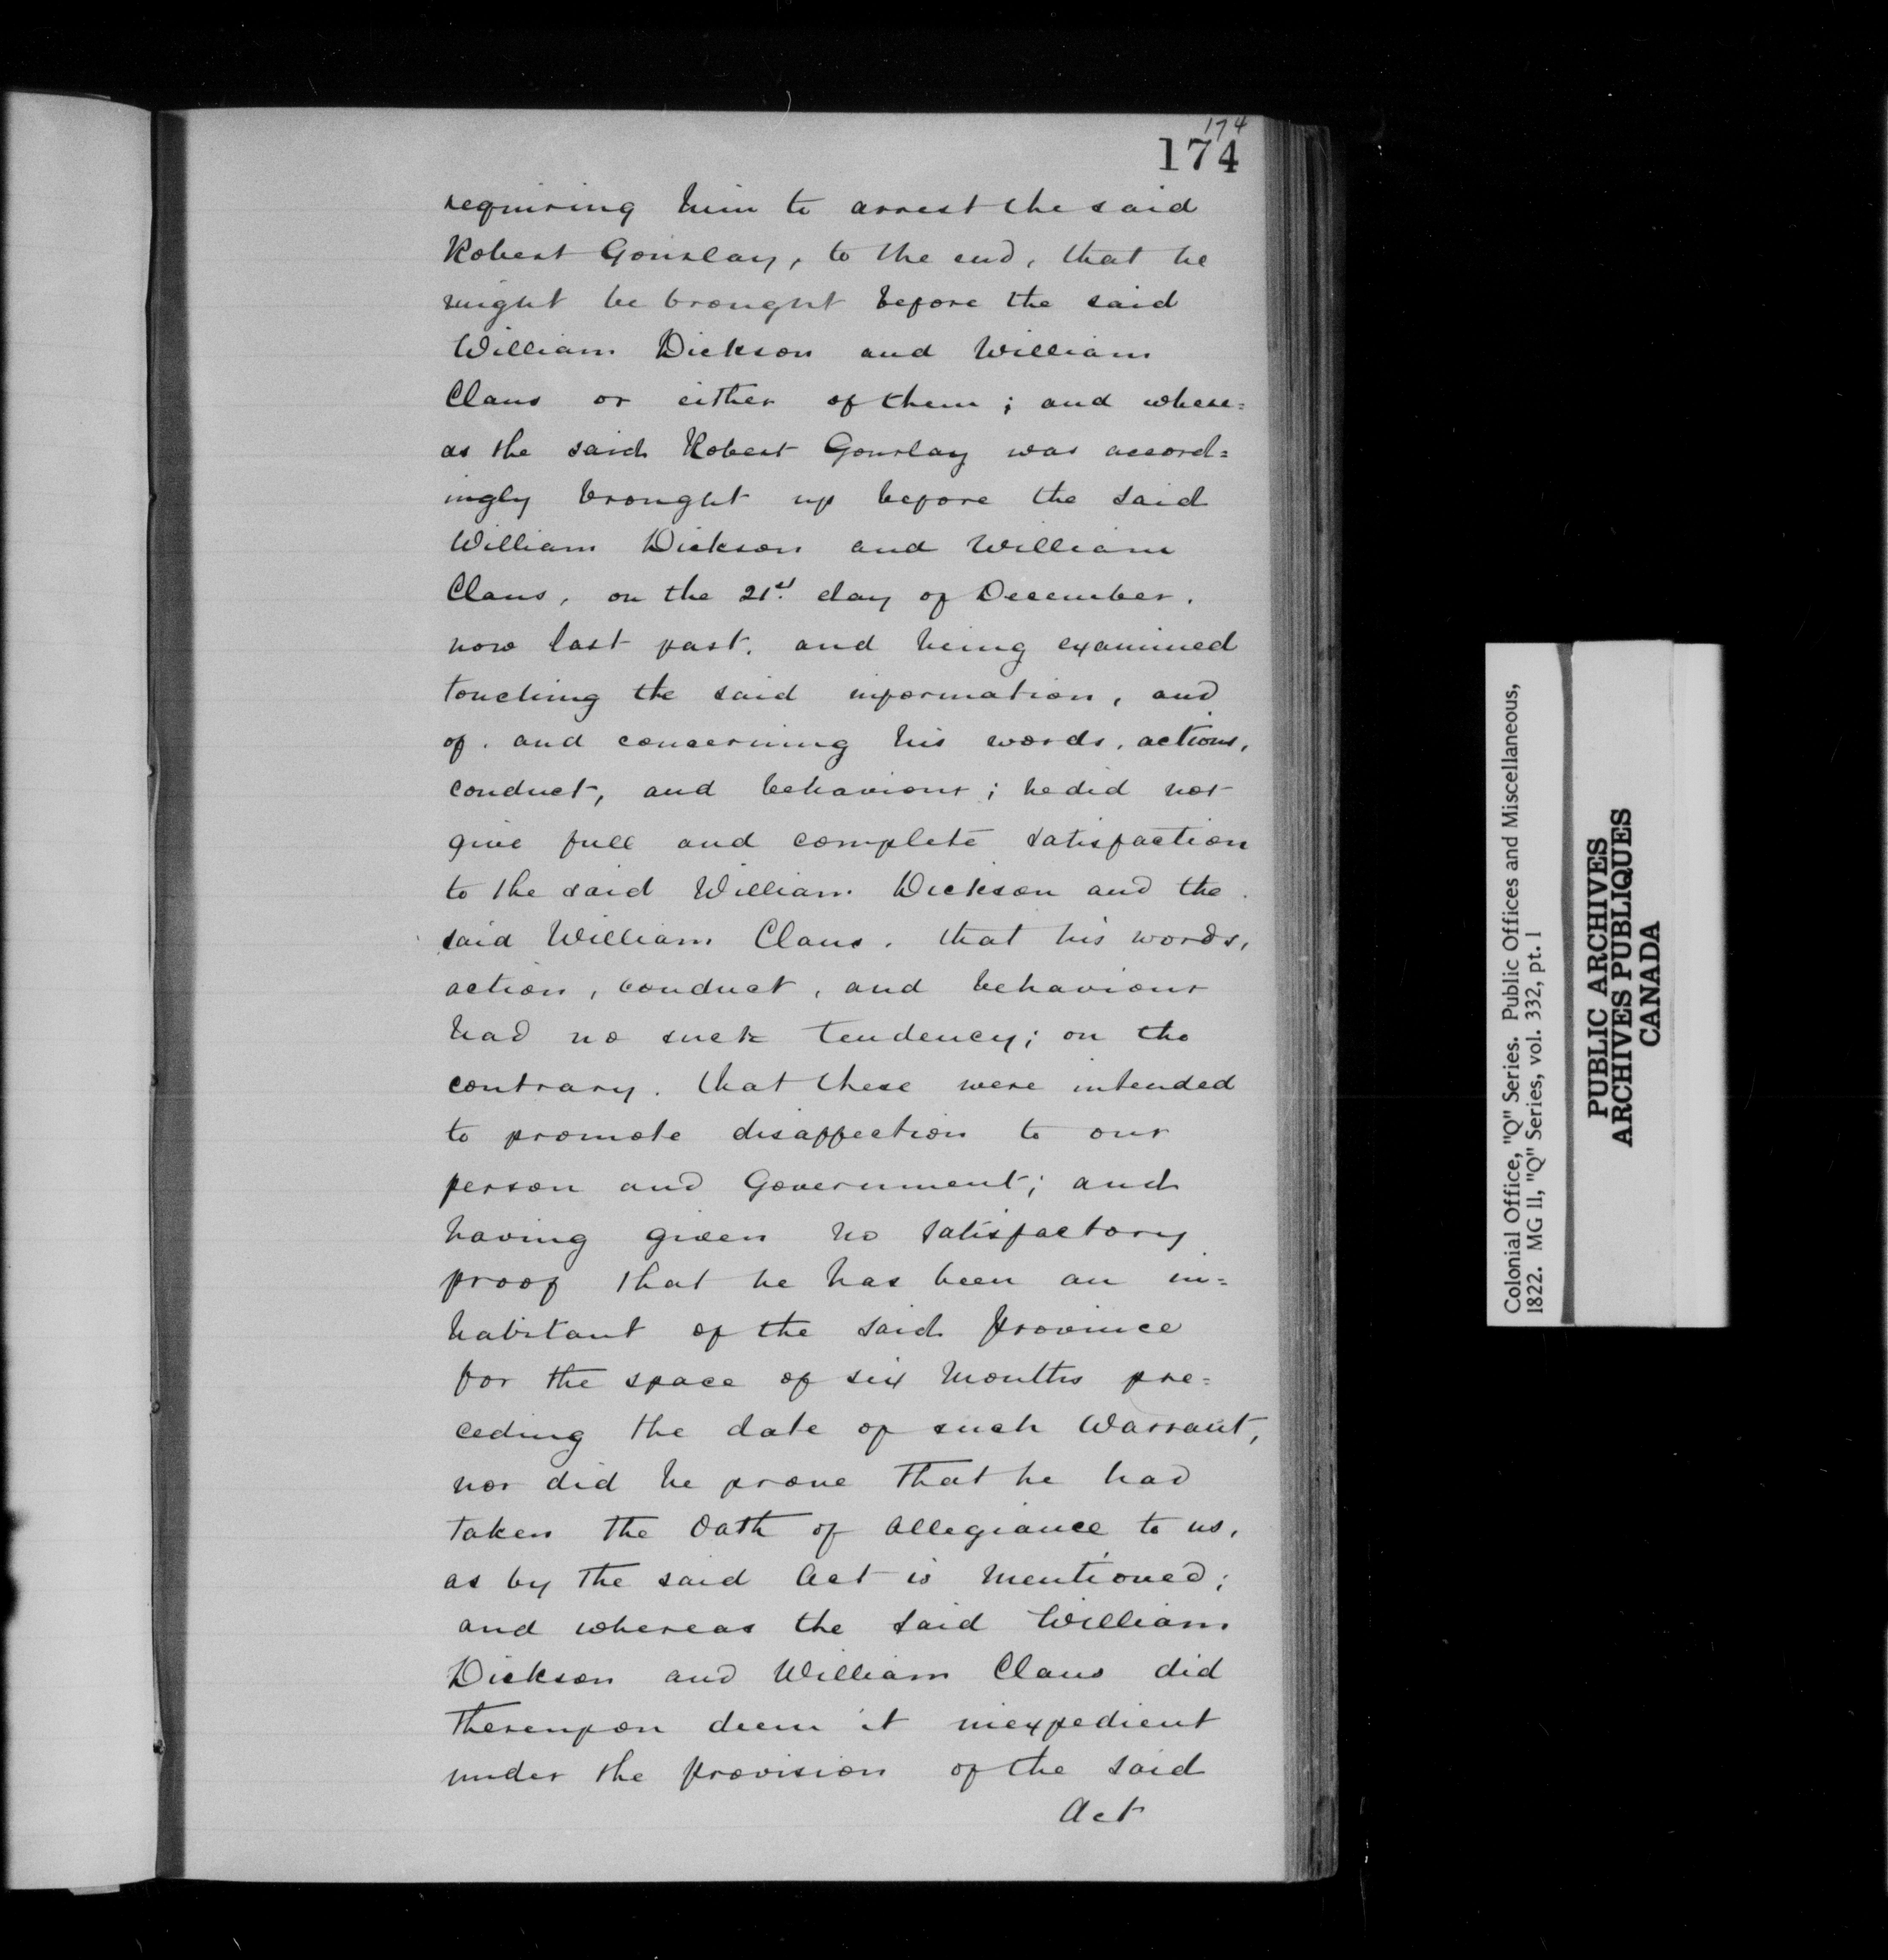 174
174
requiring him to arrest the said
Robert Gourlay, to the end, that he
might be brought before the said
William Dickson and William
Claus or either of them; and where=
as the said Robert Gourlay was accord=
ingly brought up before the said
William Dickson and William
Claus, on the 21st day of December,
now last past, and being examined
touching the said information, and
of, and concerning his words, actions,
conduct, and behaviour; he did not
give full and complete satisfaction
to the said William Dickson and the
said William Claus, that his words,
action, conduct, and behaviour
had no such tendency; on the
contrary, that these were intended
to promote disaffection to our
person and Government; and
having given no satisfactory
proof that he has been an in=
habitant of the said Province
for the space of six months pre=
ceding the date of such Warrant,
nor did he prove that he had
taken the Oath of Allegiance to us,
as by the said Act is mentioned;
and whereas the said William
Dickson and William Claus did
thereupon deem it inexpedient
under the provision of the said
Act
Colonial Office, "Q" Series. Public Offices and Miscellaneous,
1822. MG 11, "Q" Series, vol. 332, pt. 1
PUBLIC ARCHIVES
ARCHIVES PUBLIQUES
CANADA